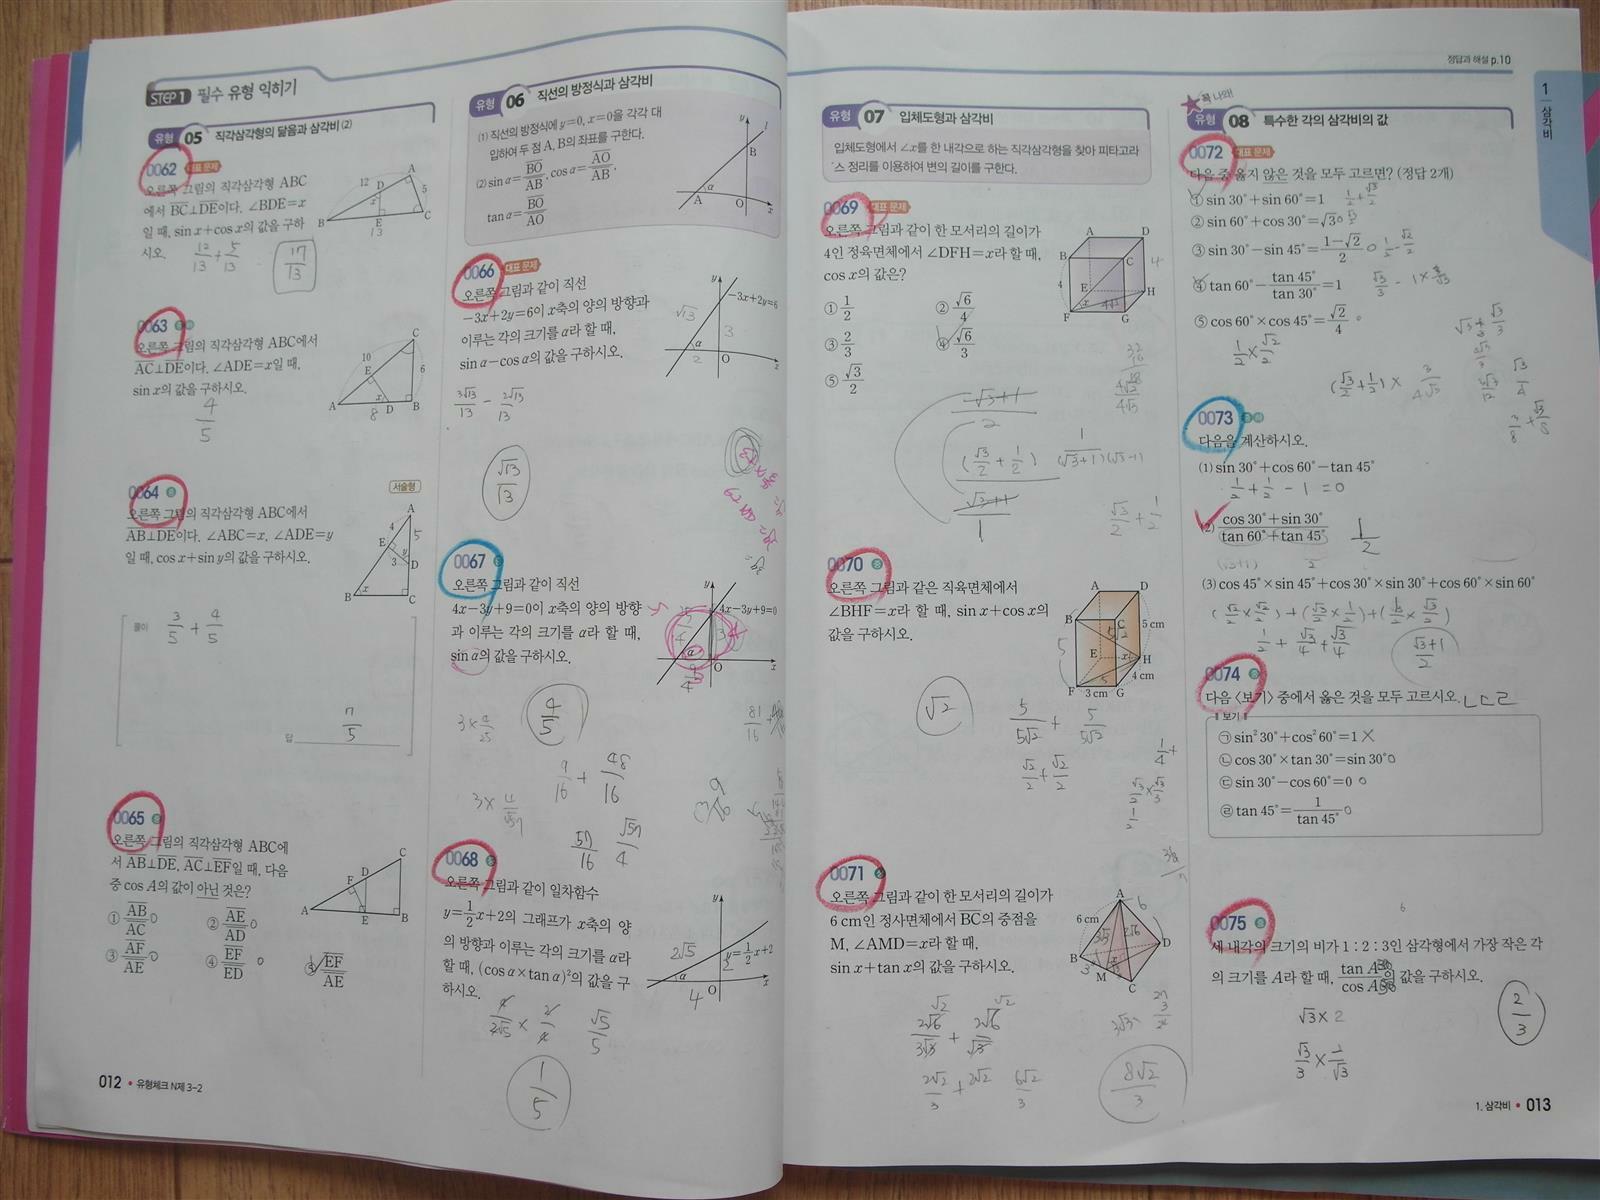 STEP 1 필수 유형 익히기
유형 05 직각삼각형의 닮음과 삼각비 (2)
0062 대표 문제
오른쪽 그림의 직각삼각형 ABC
에서 BC⊥DE이다. ∠BDE=x
일 때, sin x+cos x의 값을 구하
시오.
12/13 + 5/13
17/13
A
12
D
5
x
B
E
C
13
0063 중
오른쪽 그림의 직각삼각형 ABC에서
AC⊥DE이다. ∠ADE=x일 때,
sin x의 값을 구하시오.
4/5
C
10
E
6
x
A
8
D
B
0064 중
서술형
오른쪽 그림의 직각삼각형 ABC에서
AB⊥DE이다. ∠ABC=x, ∠ADE=y
일 때, cos x+sin y의 값을 구하시오.
A
4
5
E
y
3
D
x
B
C
풀이
3/5 + 4/5
7/5
답
0065 중
오른쪽 그림의 직각삼각형 ABC에
서 AB⊥DE, AC⊥EF일 때, 다음
중 cos A의 값이 아닌 것은?
① AB/AC ○
② AE/AD ○
③ AF/AE ○
④ EF/ED ○
⑤ EF/AE
C
D
F
A
E
B
012 • 유형체크 N제 3-2
유형 06 직선의 방정식과 삼각비
(1) 직선의 방정식에 y=0, x=0을 각각 대
입하여 두 점 A, B의 좌표를 구한다.
(2) sin a=BO/AB, cos a=AO/AB,
tan a=BO/AO
y
l
B
a
A
O
x
0066 대표 문제
오른쪽 그림과 같이 직선
-3x+2y=6이 x축의 양의 방향과
이루는 각의 크기를 a라 할 때,
sin a-cos a의 값을 구하시오.
y
-3x+2y=6
√13
3
a
2
O
x
3√13/13 - 2√13/13
√13/13
0067 중
오른쪽 그림과 같이 직선
4x-3y+9=0이 x축의 양의 방향
과 이루는 각의 크기를 a라 할 때,
sin a의 값을 구하시오.
y
4x-3y+9=0
3
a
O
x
9/4
4/5
81/16
9/16 + 48/16
57/16
√57/4
0068 중
오른쪽 그림과 같이 일차함수
y=1/2x+2의 그래프가 x축의 양
의 방향과 이루는 각의 크기를 a라
할 때, (cos a×tan a)²의 값을 구
하시오.
y
2√5
y=1/2x+2
2
a
4
O
x
4/2√5 × 2/4
√5/5
1/5
정답과 해설 p.10
유형 07 입체도형과 삼각비
입체도형에서 ∠x를 한 내각으로 하는 직각삼각형을 찾아 피타고라
스 정리를 이용하여 변의 길이를 구한다.
0069 대표 문제
오른쪽 그림과 같이 한 모서리의 길이가
4인 정육면체에서 ∠DFH=x라 할 때,
cos x의 값은?
① 1/2
② √6/4
③ 2/3
④ √6/3
⑤ √3/2
A
D
B
C
4
4
E
H
x
4√2
F
G
4√2/4√3
√3+1/2
(√3/2 + 1/2)
√3+1/1
√3/2 + 1/2
0070 중
오른쪽 그림과 같은 직육면체에서
∠BHF=x라 할 때, sin x+cos x의
값을 구하시오.
A
D
B
C
5 cm
5√2
5
E
x
H
5
4 cm
F
3 cm
G
√2
5/5√2 + 5/5√2
√2/2 + √2/2
0071 상
오른쪽 그림과 같이 한 모서리의 길이가
6 cm인 정사면체에서 BC의 중점을
M, ∠AMD=x라 할 때,
sin x+tan x의 값을 구하시오.
A
6 cm
6
2√6
D
B
3
x
M
C
2√6/3√3 + 2√6/√3
2√2/3 + 2√2
6√2/3
8√2/3
1 삼각비
꼭 나와!
유형 08 특수한 각의 삼각비의 값
0072 대표 문제
다음 중 옳지 않은 것을 모두 고르면? (정답 2개)
① sin 30°+sin 60°=1 1/2+√3/2
② sin 60°+cos 30°=√3 ○
③ sin 30°-sin 45°=1-√2/2 ○ 1/2-√2/2
④ tan 60°-tan 45°/tan 30°=1
⑤ cos 60°×cos 45°=√2/4 ○
1/2×√2/2
(√3/2+1/2)×
0073 중
다음을 계산하시오.
(1) sin 30°+cos 60°-tan 45°
1/2+1/2-1=0
(2) cos 30°+sin 30°/tan 60°+tan 45°
1/2
(3) cos 45°×sin 45°+cos 30°×sin 30°+cos 60°×sin 60°
(√2/2×√2/2)+(√3/2×1/2)+(1/2×√3/2)
1/2+√3/4+√3/4
√3+1/2
0074 중
다음 〈보기〉 중에서 옳은 것을 모두 고르시오. ㄴㄷㄹ
보기
㉠ sin² 30°+cos² 60°=1 X
㉡ cos 30°×tan 30°=sin 30° ○
㉢ sin 30°-cos 60°=0 ○
㉣ tan 45°=1/tan 45° ○
0075 중
세 내각의 크기의 비가 1 : 2 : 3인 삼각형에서 가장 작은 각
의 크기를 A라 할 때, tan A/cos A의 값을 구하시오.
√3×2
√3/3×2/√3
2/3
1. 삼각비 • 013